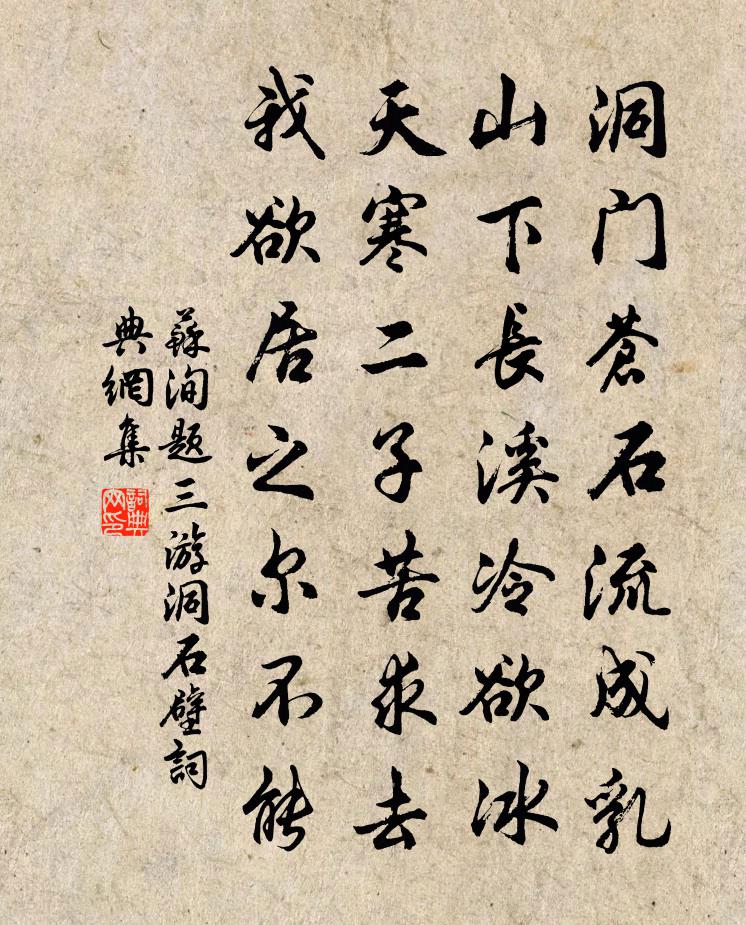 洞门苍石流成乳
山下長溪冷欲冰
天寒二子苦求去
我欲居之尔不能
蘇洵题三游洞石壁詞
典網集
詞典
网印